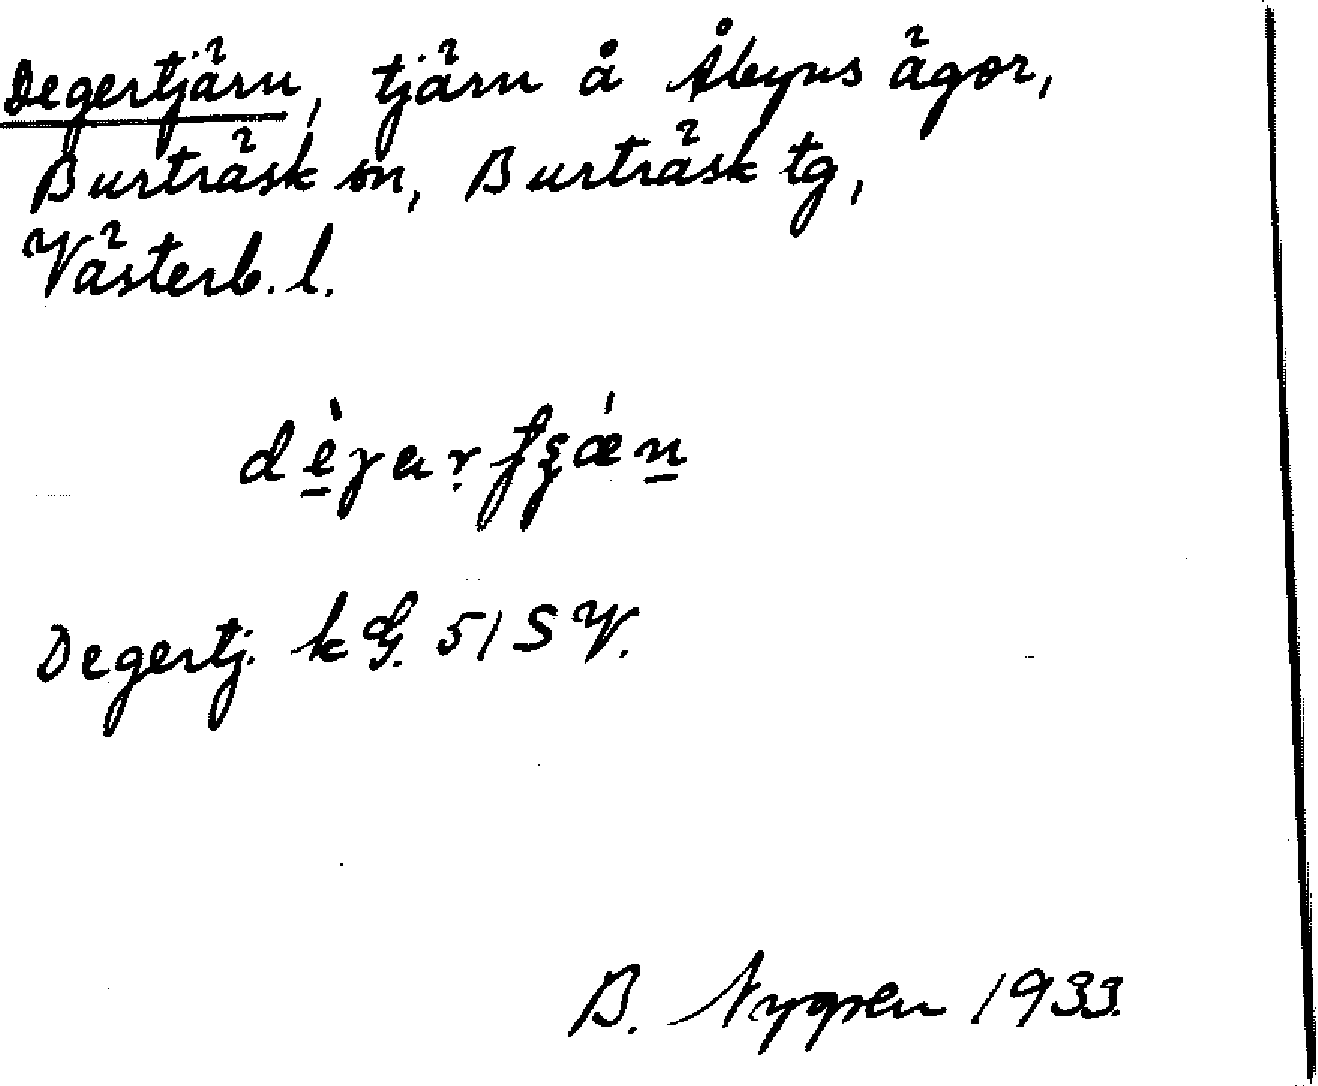 Degertjärn, tjärn å Åbyns ägor,
Burträsk sn, Burträsk tg,
Västerb. l.
Degertj. k G. 51 SV.
B. Nygren 1933.